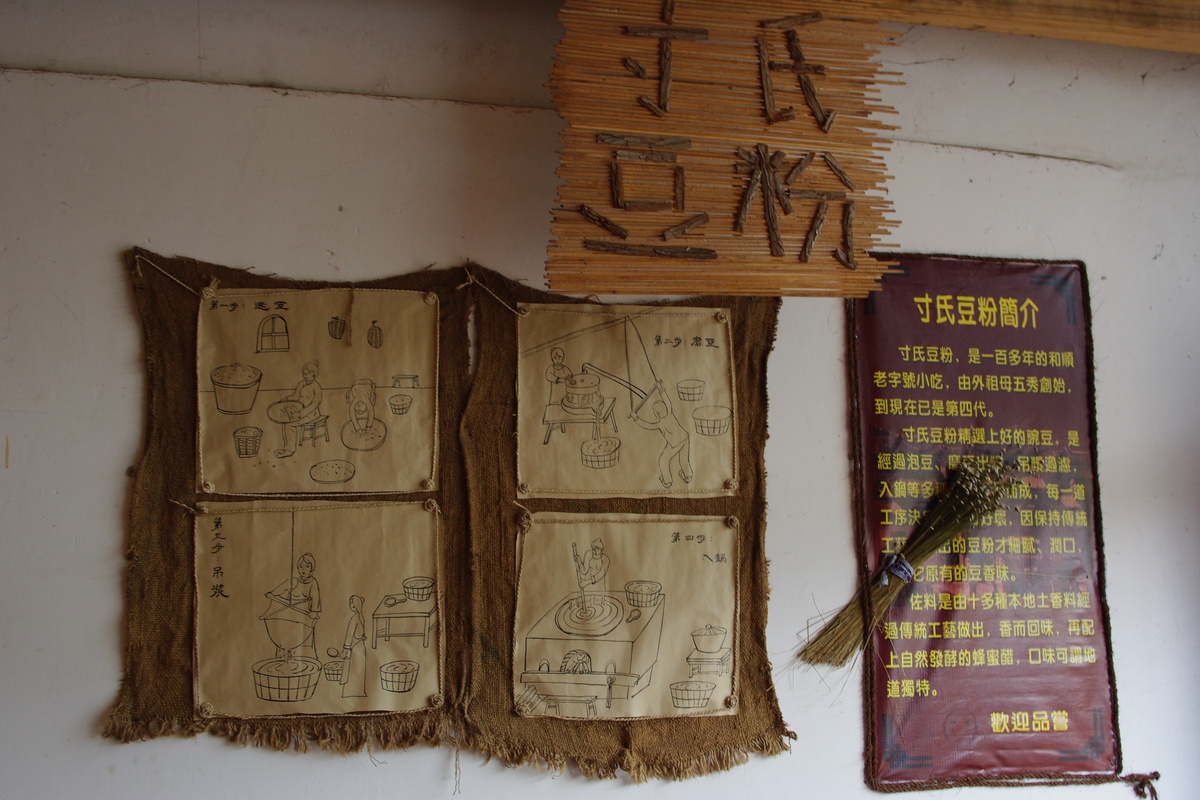 寸氏
豆粉
第一步：选豆
第二步：磨豆
第三步 吊浆
第四步：
入锅
寸氏豆粉簡介
寸氏豆粉，是一百多年的和順
老字號小吃，由外祖母五秀創始，
到現在已是第四代。
寸氏豆粉精選上好的豌豆，是
經過泡豆、磨豆出漿、吊漿過濾，
入鍋等多 而成，每一道
工序決 好壞，因保持傳統
工藝 出的豆粉才細膩、潤口，
它原有的豆香味。
佐料是由十多種本地土香料經
過傳統工藝做出，香而回味，再配
上自然發酵的蜂蜜醋，口味可謂地
道獨特。
歡迎品嘗